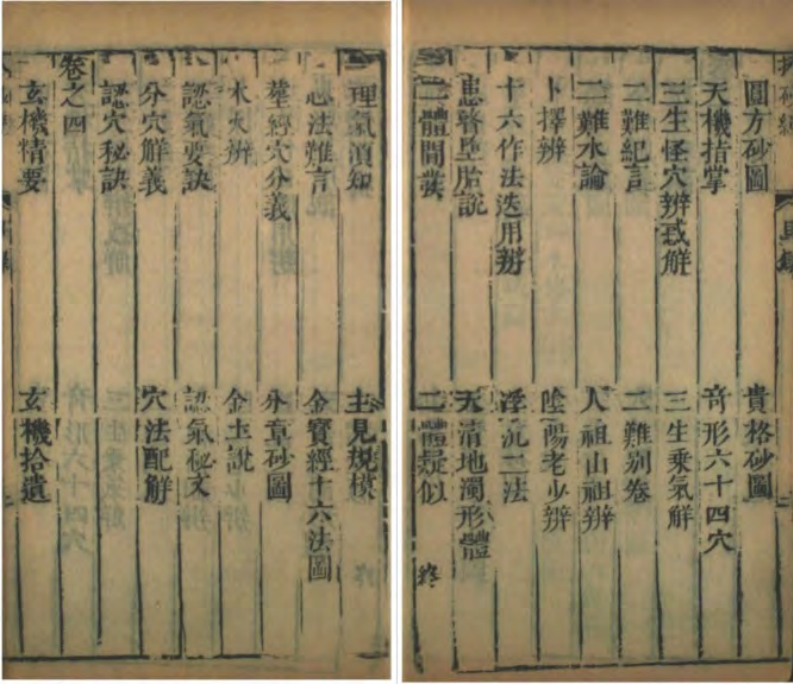 理氣須知 主見規模
忌法難言 金寶經十六法圖
葬經穴分義 分章砂圖
水火辨 金土說
認氣要訣 認氣秘文
分穴解義 穴法配解
認穴秘訣
卷之四
玄機精要 玄機拾遺
圓方砂圖 貴格砂圖
天機指掌 奇形六十四穴
三生怪穴辨惑解 三生乘氣解
二難紀言 二難別卷
二難水論 人祖山祖辨
卜擇辨 陰陽老少辨
十六作法迭用辨 浮沉二法
患瞽墮胎說 天清地濁形體
二體開 二體疑似 終